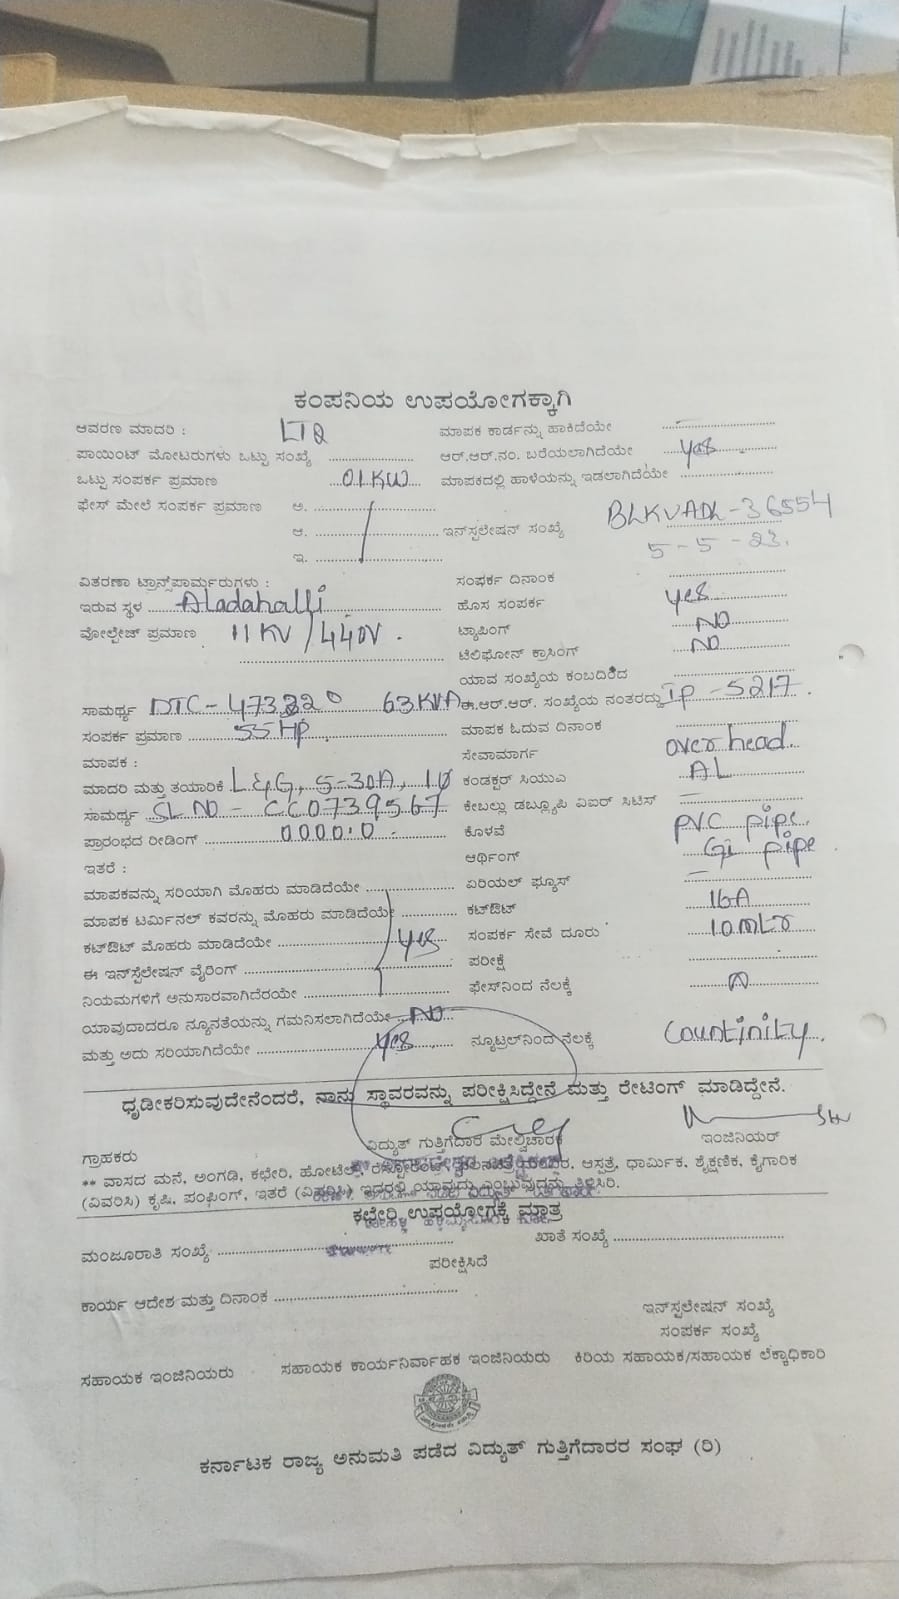 ಕಂಪನಿಯ ಉಪಯೋಗಕ್ಕಾಗಿ
ಆವರಣ ಮಾದರಿ : ಮಾಪಕ ಕಾರ್ಡನ್ನು ಹಾಕಿದೆಯೇ
ಪಾಯಿಂಟ್ ಮೋಟರುಗಳು ಒಟ್ಟು ಸಂಖ್ಯೆ ಆರ್.ಆರ್.ನಂ. ಬರೆಯಲಾಗಿದೆಯೇ yes
ಒಟ್ಟು ಸಂಪರ್ಕ ಪ್ರಮಾಣ 01 KW ಮಾಪಕದಲ್ಲಿ ಹಾಳೆಯನ್ನು ಇಡಲಾಗಿದೆಯೇ
ಫೇಸ್ ಮೇಲೆ ಸಂಪರ್ಕ ಪ್ರಮಾಣ ಅ.
ಆ. ಇನ್‌ಸ್ಪಲೇಷನ್ ಸಂಖ್ಯೆ 36554
ಇ. 5-5-23.
ವಿತರಣಾ ಟ್ರಾನ್ಸ್‌ಪಾರ್ಮರುಗಳು : ಸಂಪರ್ಕ ದಿನಾಂಕ
ಇರುವ ಸ್ಥಳ Aladahalli ಹೊಸ ಸಂಪರ್ಕ yes
ವೋಲ್ಟೇಜ್ ಪ್ರಮಾಣ 11 KV / 440V . ಟ್ಯಾಪಿಂಗ್ NO
ಟೆಲಿಫೋನ್ ಕ್ರಾಸಿಂಗ್ NO
ಯಾವ ಸಂಖ್ಯೆಯ ಕಂಬದಿಂದ
ಸಾಮರ್ಥ್ಯ DTC - 63 KVA ಈ.ಆರ್.ಆರ್. ಸಂಖ್ಯೆಯ ನಂತರದ್ದು IP - 5217 .
ಸಂಪರ್ಕ ಪ್ರಮಾಣ 55 HP ಮಾಪಕ ಓದುವ ದಿನಾಂಕ
ಮಾಪಕ : ಸೇವಾಮಾರ್ಗ over head.
ಮಾದರಿ ಮತ್ತು ತಯಾರಿಕೆ L&G, 5-30A, 1Ø ಕಂಡಕ್ಟರ್ ಸಿಯುಎ AL
ಸಾಮರ್ಥ್ಯ SL NO - CC0739567 ಕೇಬಲ್ಲು ಡಬ್ಲ್ಯೂಪಿ ವಿಐರ್ ಸಿಟಿಸ್
ಪ್ರಾರಂಭದ ರೀಡಿಂಗ್ 0000.0 . ಕೊಳವೆ PVC pipe.
ಇತರೆ : ಆರ್ಥಿಂಗ್ Gi pipe
ಮಾಪಕವನ್ನು ಸರಿಯಾಗಿ ಮೊಹರು ಮಾಡಿದೆಯೇ ಏರಿಯಲ್ ಫ್ಯೂಸ್
ಮಾಪಕ ಟರ್ಮಿನಲ್ ಕವರನ್ನು ಮೊಹರು ಮಾಡಿದೆಯೇ ಕಟ್‌ಔಟ್ 16A
ಕಟ್‌ಔಟ್ ಮೊಹರು ಮಾಡಿದೆಯೇ yes ಸಂಪರ್ಕ ಸೇವೆ ದೂರು 10 mtr
ಈ ಇನ್‌ಸ್ಪೆಲೇಷನ್ ವೈರಿಂಗ್ ಪರೀಕ್ಷೆ
ನಿಯಮಗಳಿಗೆ ಅನುಸಾರವಾಗಿದೆರೆಯೇ ಫೇಸ್‌ನಿಂದ ನೆಲಕ್ಕೆ
ಯಾವುದಾದರೂ ನ್ಯೂನತೆಯನ್ನು ಗಮನಿಸಲಾಗಿದೆಯೇ NO
ಮತ್ತು ಅದು ಸರಿಯಾಗಿದೆಯೇ yes ನ್ಯೂಟ್ರಲ್‌ನಿಂದ ನೆಲಕ್ಕೆ Countinity.
ಧೃಡೀಕರಿಸುವುದೇನೆಂದರೆ, ನಾನು ಸ್ಥಾವರವನ್ನು ಪರೀಕ್ಷಿಸಿದ್ದೇನೆ ಮತ್ತು ರೇಟಿಂಗ್ ಮಾಡಿದ್ದೇನೆ.
ಗ್ರಾಹಕರು ವಿದ್ಯುತ್ ಗುತ್ತಿಗೆದಾರ ಮೇಲ್ವಿಚಾರಕ ಇಂಜಿನಿಯರ್
** ವಾಸದ ಮನೆ, ಅಂಗಡಿ, ಕಛೇರಿ, ಹೋಟೆಲ್, ಆಸ್ಪತ್ರೆ, ಧಾರ್ಮಿಕ, ಶೈಕ್ಷಣಿಕ, ಕೈಗಾರಿಕ
(ವಿವರಿಸಿ) ಕೃಷಿ, ಪಂಫಿಂಗ್, ಇತರೆ (ವಿವರಿಸಿ) ಇದರಲ್ಲಿ ಯಾವುದು ಎಂಬುವುದನ್ನು ತಿಳಿಸಿರಿ.
ಕಛೇರಿ ಉಪಯೋಗಕ್ಕೆ ಮಾತ್ರ
ಮಂಜೂರಾತಿ ಸಂಖ್ಯೆ ಖಾತೆ ಸಂಖ್ಯೆ
ಪರೀಕ್ಷಿಸಿದೆ
ಕಾರ್ಯ ಆದೇಶ ಮತ್ತು ದಿನಾಂಕ
ಇನ್‌ಸ್ಪಲೇಷನ್ ಸಂಖ್ಯೆ
ಸಂಪರ್ಕ ಸಂಖ್ಯೆ
ಸಹಾಯಕ ಇಂಜಿನಿಯರು ಸಹಾಯಕ ಕಾರ್ಯನಿರ್ವಾಹಕ ಇಂಜಿನಿಯರು ಕಿರಿಯ ಸಹಾಯಕ/ಸಹಾಯಕ ಲೆಕ್ಕಾಧಿಕಾರಿ
ಕರ್ನಾಟಕ ರಾಜ್ಯ ಅನುಮತಿ ಪಡೆದ ವಿದ್ಯುತ್ ಗುತ್ತಿಗೆದಾರರ ಸಂಘ (ರಿ)